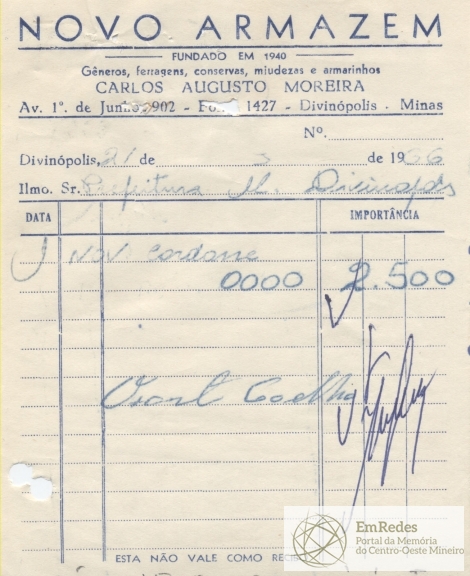 NOVO ARMAZEM
FUNDADO EM 1940
Gêneros, ferragens, conservas, miudezas e armarinhos
CARLOS AUGUSTO MOREIRA
Av. 1º. de Junho 902 - 1427 - Divinópolis . Minas
Nº.
Divinópolis, 21 de 3 de 1966
Ilmo. Sr. Prefeitura M. Divinópolis
DATA IMPORTÂNCIA
1 Nov
0000 2.500
Coelho
ESTA NÃO VALE COMO RECIBO
EmRedes
Portal da Memória
do Centro-Oeste Mineiro